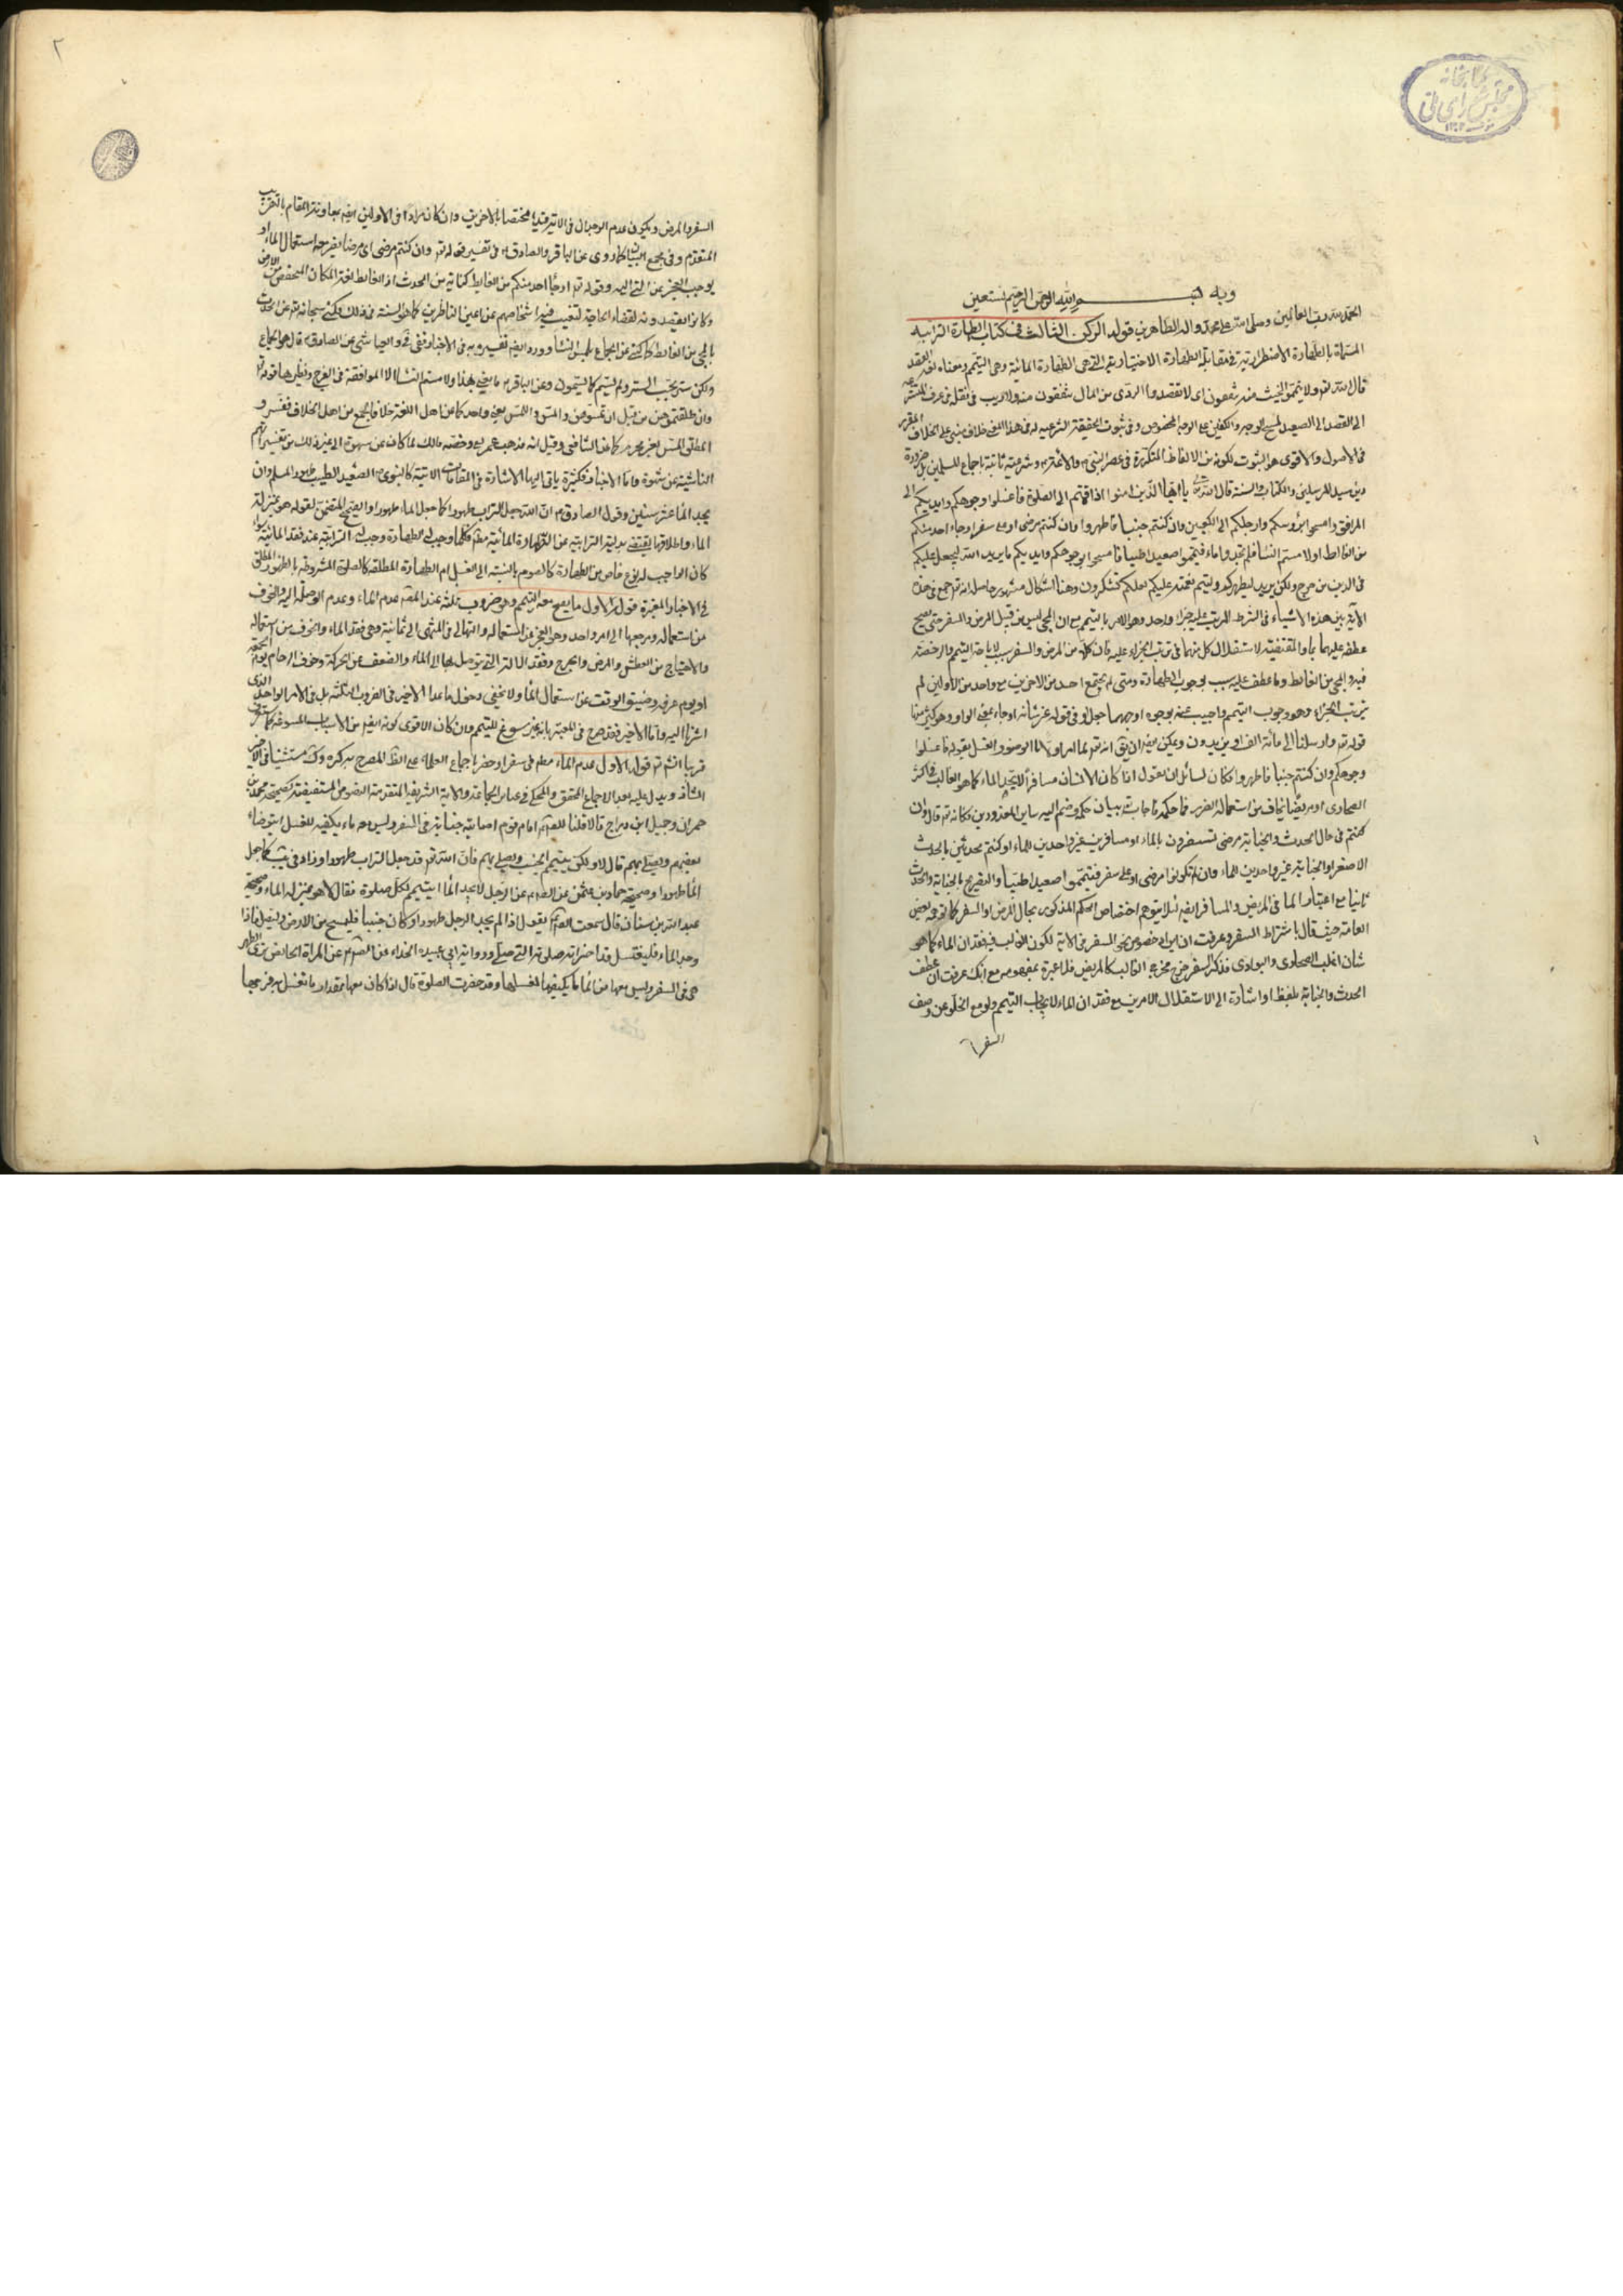 بسم الله الرحمن الرحيم وبه نستعين
الحمد لله رب العالمين وصلى الله على محمد واله الطاهرين قوله الركن الثالث فى كتاب الطهارة الترابية
المسماة بالطهارة الاضطرارية فى مقابلة الطهارة الاختيارية التى هى الطهارة المائية وهى التيمم ومعناه لغة القصد
قال الله تعالى ولا تيمموا الخبيث منه تنفقون اى لا تقصدوا الردى من المال تنفقون منه ولا ريب فى نقله فى عرف المتشرعة
الى القصد الى الصعيد لمسح الوجه والكفين على الوجه المخصوص وفى ثبوت الحقيقة الشرعية له فى هذا المعنى خلاف مبنى على الخلاف المقرر
فى الاصول والاقوى هو الثبوت لكونه من الالفاظ المتكررة فى عصر النبى والائمة وشرعيته ثابتة باجماع المسلمين بل ضرورة
دين سيد المرسلين والكتاب والسنة قال الله يا ايها الذين امنوا اذا قمتم الى الصلوة فاغسلوا وجوهكم وايديكم الى
المرافق وامسحوا برؤسكم وارجلكم الى الكعبين وان كنتم جنبا فاطهروا وان كنتم مرضى او على سفر او جاء احد منكم
من الغائط اولامستم النساء فلم تجدوا ماء فتيمموا صعيدا طيبا فامسحوا بوجوهكم وايديكم منه ما يريد الله ليجعل عليكم
فى الدين من حرج ولكن يريد ليطهركم وليتم نعمته عليكم لعلكم تشكرون وهنا اشكال مشهور حاصله انه جمع فى هذه
الآية بين هذه الاشياء فى الشرط المرتب عليه جزاء واحد وهو الامر بالتيمم مع ان المجئ ليس من قبيل المرض والسفر حتى يصح
عطفه عليهما باو المقتضية لاستقلال كل منهما فى ترتب الجزاء عليه فان كلا من المرض والسفر سبب لاباحة التيمم والرخصة
فيه والمجئ من الغائط وما عطف عليه سبب لوجوب الطهارة ومتى لم يجتمع احد من الاخرين مع واحد من الاولين لم
يترتب الجزاء وهو وجوب التيمم واجيب عنه بوجوه اوجهها جعل او فى قوله عز شانه او جاء بمعنى الواو وهو كثير منها
قوله تعالى وارسلناه الى مائة الف او يزيدون
وجوهكم وان كنتم جنبا فاطهروا فكان لسائل ان يقول اذا كان الانسان مسافرا لا يجد الماء كما هو الغالب فى اكثر
الصحارى او مريضا يخاف من استعماله الضرر فما حكمه فاجاب ببيان حكمه وضم اليه ساير المعذورين فكانه تعالى قال وان
كنتم فى حال الحدث والجنابة مرضى تستضرون بالماء او مسافرين غير واجدين للماء او كنتم محدثين بالحدث
الاصغر او الجنابة غير واجدين الماء وان لم تكونوا مرضى او على سفر فتيمموا صعيدا طيبا والتصريح بالجنابة والحدث
ثانيا مع اعتبارهما فى المريض والمسافر ايضا لئلا يتوهم اختصاص الحكم المذكور بحال المرض او السفر كما توهمه بعض
العامة حيث قال باشتراط السفر وعرفت ان ايراد خصوص السفر فى الاية لكون الغالب فيه فقدان الماء كما هو
شان اغلب الصحارى والبوادى فذكر السفر خرج مخرج الغالب كالمريض فلا عبرة بمفهومه مع انك عرفت ان عطف
الحدث والجنابة بلفظ او اشارة الى الاستقلال الامرين مع فقدان الماء لايجاب التيمم ولو مع الخلو عن وصف
السفر
٢
السفر والمرض ويكون عدم الوجدان فى الاية قيدا مختصا بالاخرين وان كان مرادا فى الاولين ايضا بمعاونة المقام بالتقريب
المتقدم وفى مجمع البيان المروى عن الباقر والصادق فى تفسير قوله تعالى وان كنتم مرضى اى مرضا يضر معه استعمال الماء او
يوجب العجز عن السعى اليه وقوله تعالى او جاء احد منكم من الغائط كناية عن الحدث اذ الغائط لغة المكان المنخفض من الارض
وكانوا يقصدونه لقضاء الحاجة لتغيب فيه اشخاصهم عن اعين الناظرين كما هو السنة فى ذلك وكنى سبحانه عن الحدث
بالمجئ من الغائط كما كنى عن الجماع بلمس النساء وورد ايضا تفسيره به فى الاخبار ففى فى والعياشى عن الصادق قال هو الجماع
ولكن ستير يحب الستر ولم يسم كما تسمون وعن الباقر ما يعنى بهذا ولامستم النساء الا المواقعة فى الفرج
وان طلقتموهن من قبل ان تمسوهن والمس واللمس بمعنى واحد كما عن اهل اللغة خلافا لجمع من اهل الخلاف ففسروه
بمطلق المس لغير محرم كما عن الشافعى وقيل انه مذهب عمر وخصه مالك بما كان عن شهوة الى غير ذلك من تفسيراتهم
الناشئة عن شهوة واما الاخبار فكثيرة ياتى اليها الاشارة فى المقامات الاتية كالنبوى الصعيد الطيب طهور المسلم وان لم
يجد الماء عشر سنين وقول الصادق ان الله جعل التراب طهورا كما جعل الماء طهورا والصحيح المتضمن لقوله هو بمنزلة
الماء واطلاقها يقتضى بدلية الترابية عن الطهارة المائية مطلقا فكلما وجب له الطهارة وجب له الترابية عند فقد المائية سواء
كان الواجب له نوع خاص من الطهارة كالصوم بالنسبة الى الغسل ام الطهارة المطلقة كالصلوة المشروطة بالطهور المطلق
فى الاخبار المعتبرة قوله الاول ما يصح معه التيمم وهو ضروب ثلثة عند المصنف عدم الماء وعدم الوصلة اليه والخوف
من استعماله ومرجعها الى امر واحد وهو العجز عن استعماله وانتهالى فى المنتهى الى ثمانية وهى فقد الماء والخوف من استعماله
والاحتياج من العطش والمرض والجرح وفقد الالة التى يتوصل بها الى الماء والضعف عن الحركة وخوف الزحام يوم الجمعة
او يوم عرفة وضيق الوقت عن استعمال الماء ولا يخفى دخول ما عدا الاخير فى الضروب الثلثة بل فى الامر الواحد الذى
اشرنا اليه واما الاخير فقد صرح فى المعتبر بانه غير مسوغ للتيمم وان كان الاقوى كونه ايضا من الاسباب المسوغة كما ستعرفه
قريبا انشاء الله قوله الاول عدم الماء مطلقا فى سفر او حضر باجماع العلماء
الشافعى ويدل عليه بعد الاجماع المحقق والمحكى فى عبائر الجماعة والاية الشريفة المتقدمة النصوص المستفيضة كصحيحة محمد بن
حمران وجميل ابن دراج قالا قلنا للصادق امام قوم اصابته جنابة فى السفر وليس معه ماء يكفيه للغسل ايتوضأ
بعضهم ويصلى بهم قال لا ولكن يتيمم الجنب ويصلى بهم فان الله تعالى قد جعل التراب طهورا كما جعل
الماء طهورا وصحيحة حماد بن عثمن عن الصادق عن الرجل لا يجد الماء ايتيمم لكل صلوة فقال لا هو بمنزلة الماء وصحيحة
عبد الله بن سنان قال سمعت الصادق يقول اذا لم يجد الرجل طهورا وكان جنبا فليمسح من الارض وليصل فاذا
وجد الماء فليغتسل وقد اجزأته صلوته التى صلى ورواية ابى عبيدة الحذاء عن الصادق عن المراة الحائض ترى الطهر
وهى فى السفر وليس معها من الماء ما يكفيها لغسلها وقد حضرت الصلوة قال اذا كان معها بقدر ما تغسل به فرجها